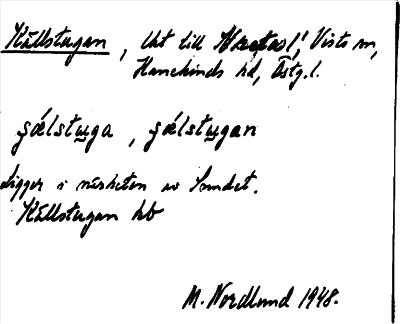 Källstugan, lht till Hästö l, Vists sn,
Hanekinds hd, Östg. l.
şɶ́lstu̲ga, şɶ́lstu̲gan
Ligger i närheten av Sundet.
Källstugan kb
M. Nordlund 1948.